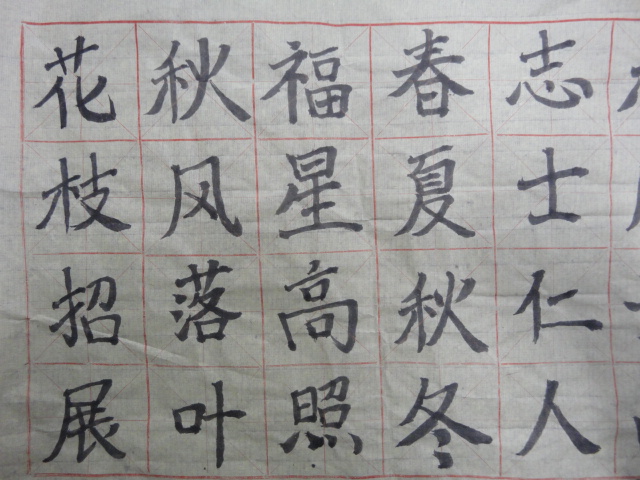 志士仁人
春夏秋冬
福星高照
秋风落叶
花枝招展